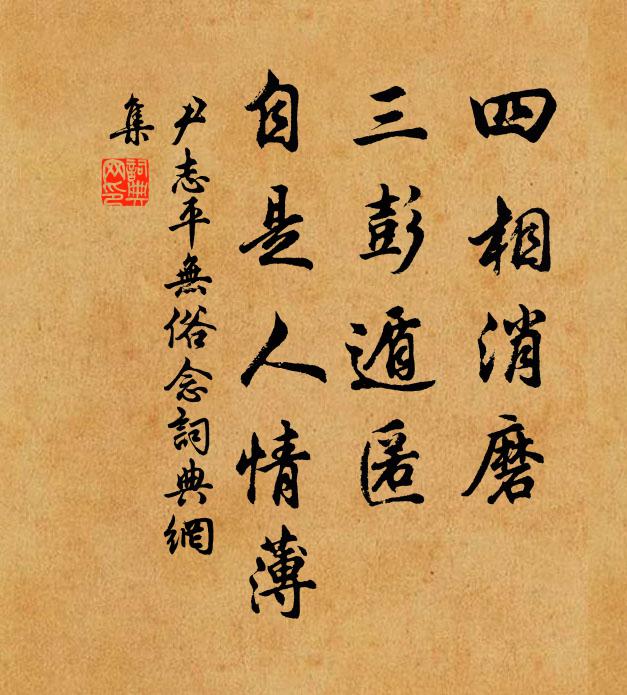 四相消磨
三彭遁匿
自是人情薄
尹志平無俗念詞典網
集
詞典网印